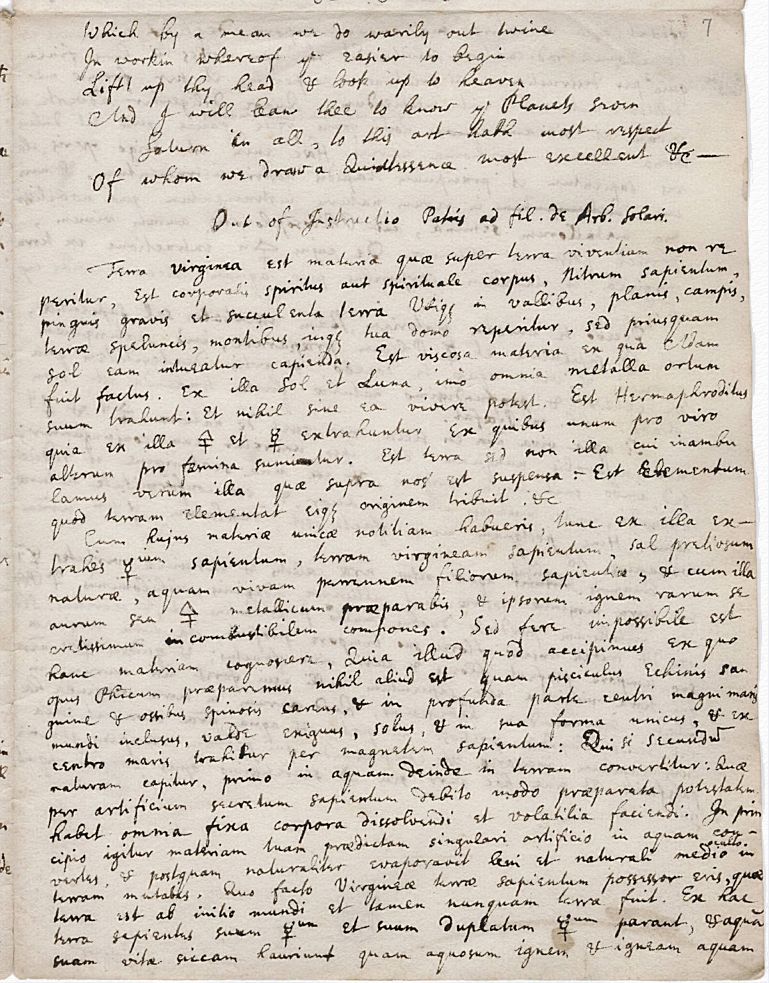 7
Which by a mean we do warily out twine
In workin whereof ye easier to begin
Lift up thy head & look up to heaven
And I will learn thee to know ye Planets seven
Saturn in all, to this art hath most respect
Of whom we draw a Quintessence most excellent &c —
Out of Instructio Patris ad fil. de Arb. Solari.
Terra virginea est materia quæ super terra viventium non re
peritur, Est corporalis spiritus aut spirituale corpus, Nitrum sapientum,
pinguis gravis et succulenta terra Ubiqȝ in vallibus, planis, campis,
terræ speluncis, montibus, inqȝ tua domo reperitur, sed priusquam
Sol eam intueatur capienda. Est viscosa materia ex qua Adam
fuit factus. Ex illa Sol et Luna, imò omnia metalla ortum
suum trahunt: Et nihil sine ea vivere potest. Est Hermaphroditus
quia ex illa 🜍 et ☿ extrahuntur Ex quibus unum pro viro
alterum pro fæmina sumitur. Est terra sed non illa cui inambu
lamus verum illa quæ supra nos est suspensa: Est Elementum
quod terram elementat eiqȝ originem tribuit. &c
Cum hujus materiæ unicæ notitiam habueris, tunc ex illa ex-
trahes ☿ium sapientum, terram virgineam sapientum, sal pretiosum
naturæ, aquam vivam perennem filiorum sapientiæ, & cum illa
aurum seu 🜍 metallicum præparabis, & ipsorum ignem rarum se
cretissimum incombustibilem compones. Sed fere impossibile est
hanc materiam cognoscere, Quia illud quod accipimus ex quo
opus Phicum præparemus nihil aliud est quam pisciculus Echinis san
guine & ossibus spinosis carens, & in profunda parte centri magni maris
mundi inclusus, valde exiguus, solus, & in sua forma unicus, & ex
centro maris trahitur per magnetem sapientum: Qui si secundū
naturam capitur, primo in aquam deinde in terram convertitur: Quæ
per artificium secretum sapientum debito modo præparata potestatem
habet omnia fixa corpora dissolvendi et volatilia faciendi. In prin
cipio igitur materiam tuam prædictam singulari artificio in aquam con-
vertes, & postquam naturaliter evaporavit leni et naturali medio occulto in
terram mutabis. Quo facto Virgineæ terræ sapientum possessor eris, quæ
terra est ab initio mundi et tamen nunquam terra fuit. Ex hac
terra sapientes suum ☿um et suum duplatum ☿um parant, & aquā
suam vitæ siccam hauriunt quam aquosum ignem & igneam aquam